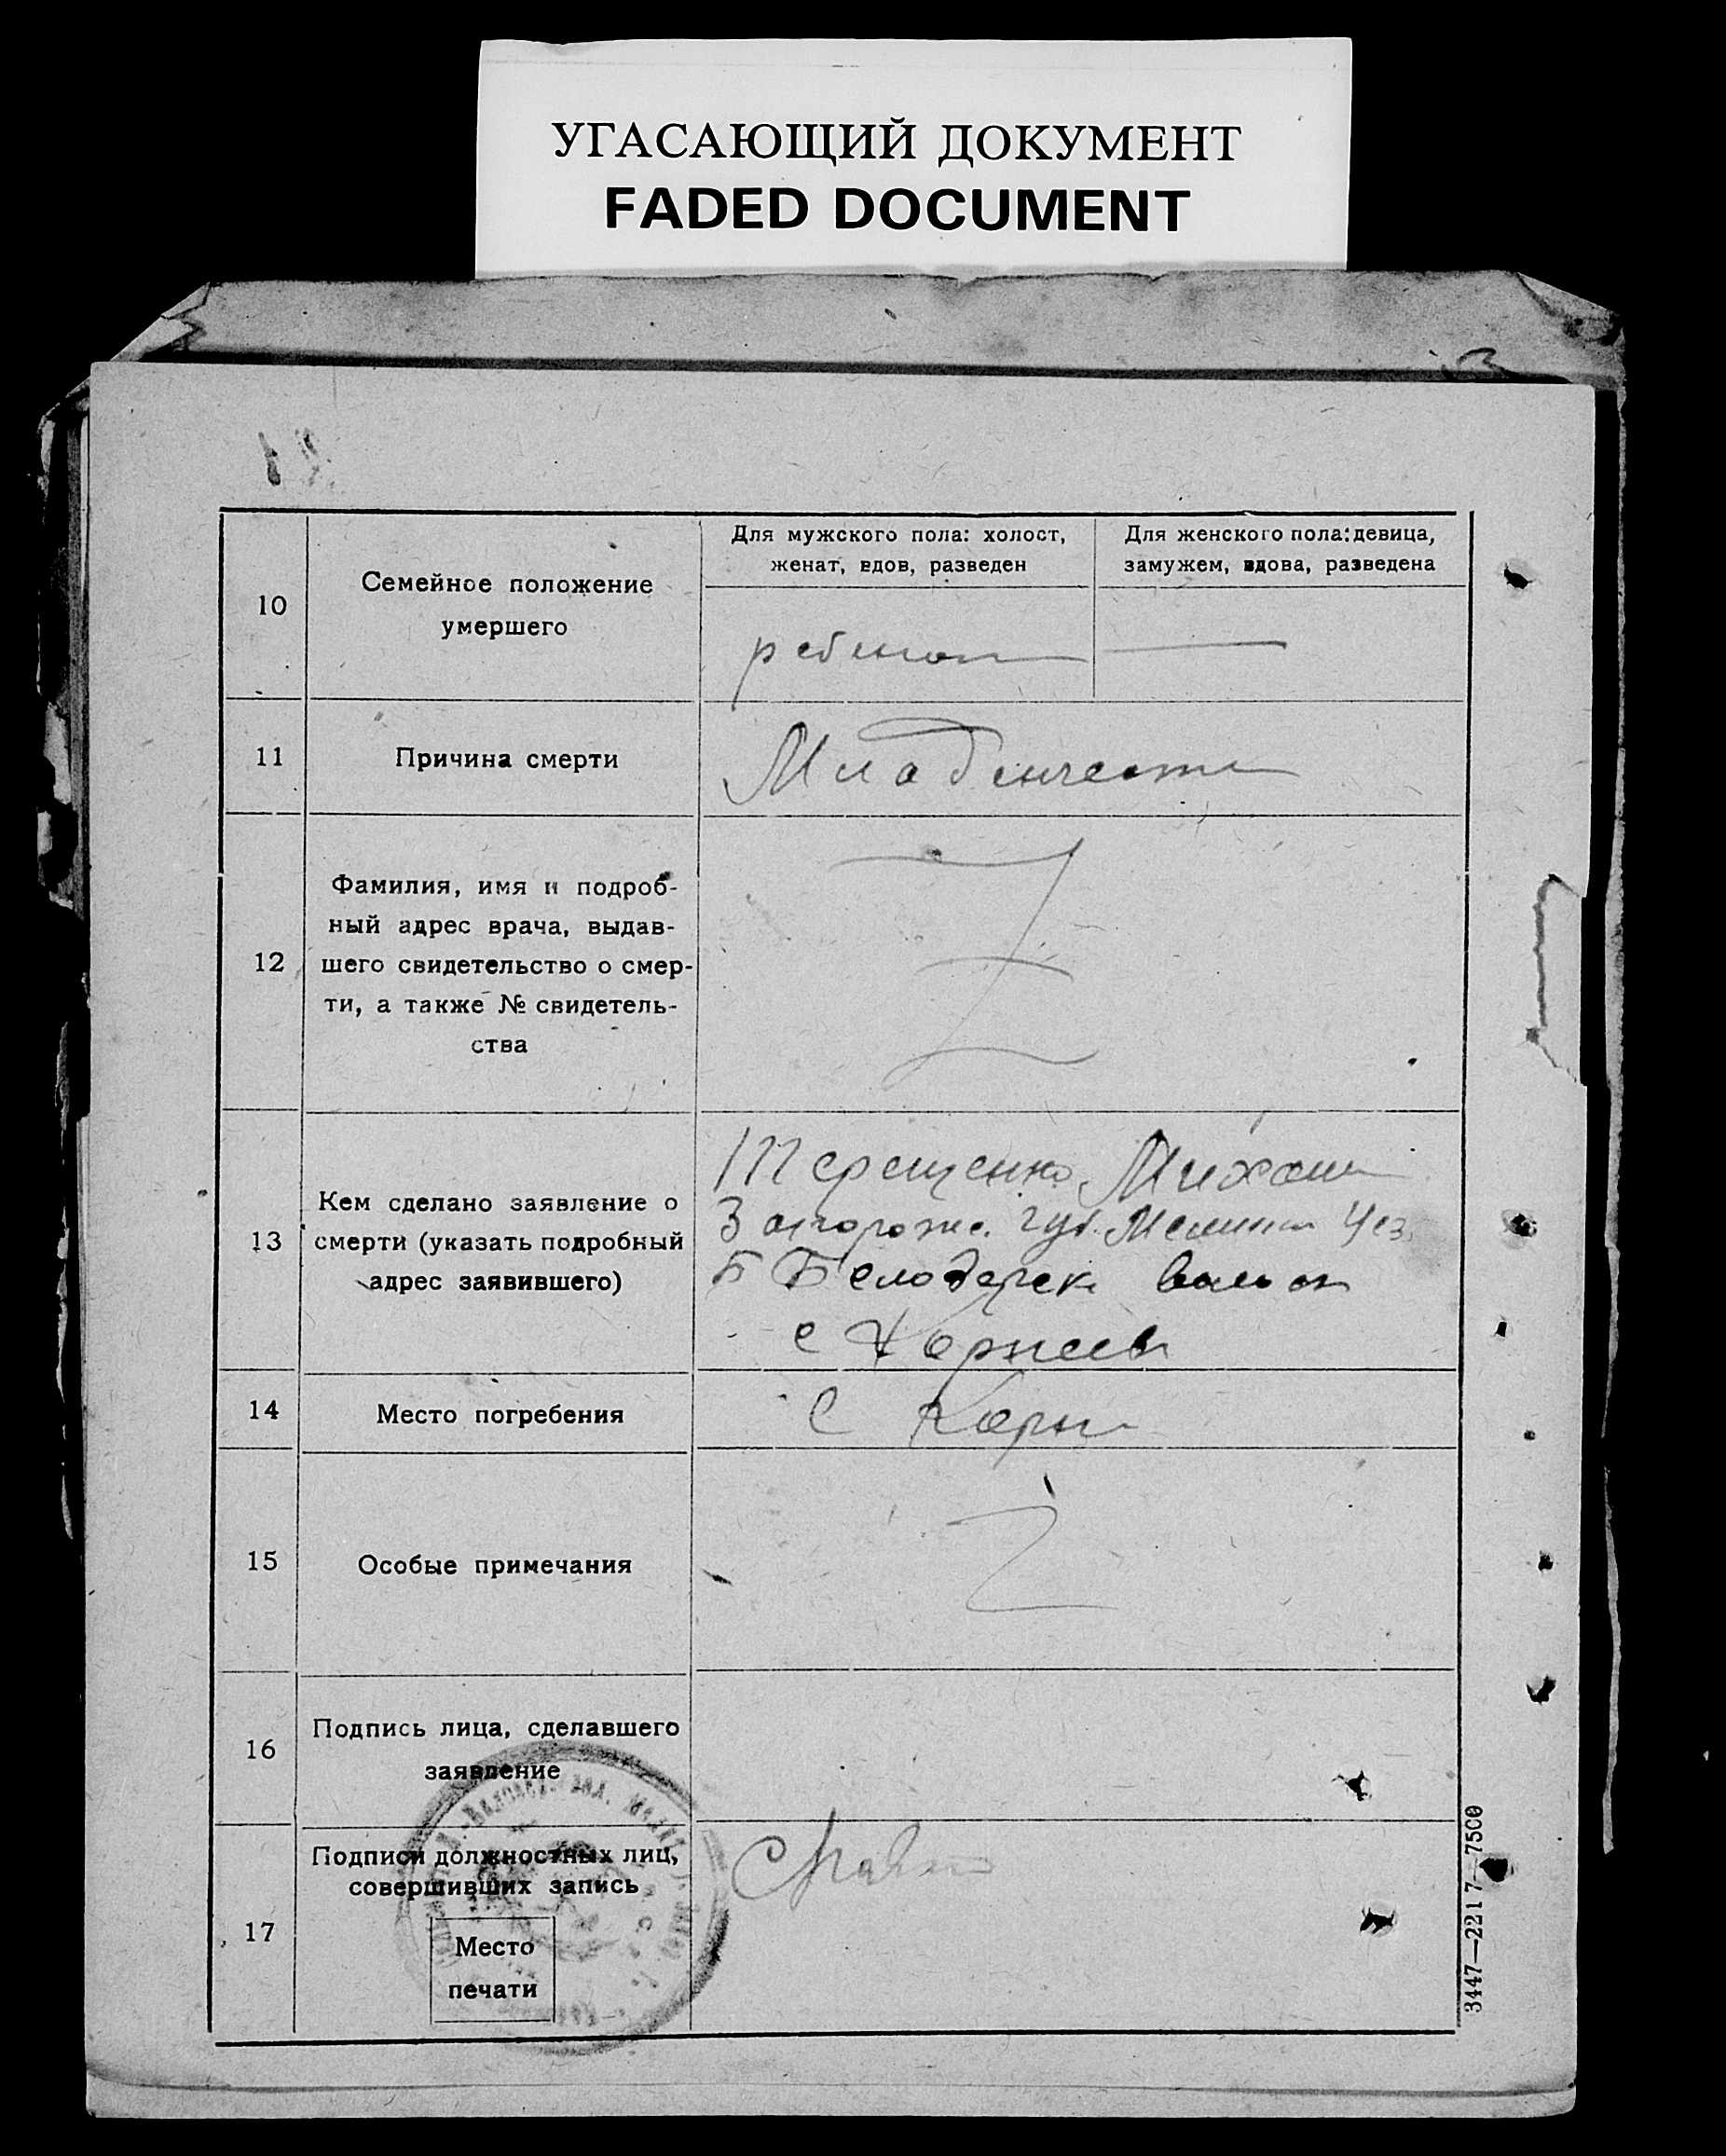 УГАСАЮЩИЙ ДОКУМЕНТ
FADED DOCUMENT
10
Семейное положение
умершего
Для мужского пола: холост,
женат, вдов, разведен
Для женского пола: девица,
замужем, вдова, разведена
ребенок
11
Причина смерти
Младенчество
12
Фамилия, имя и подроб-
ный адрес врача, выдав-
шего свидетельство о смер-
ти, а также № свидетель-
ства
13
Кем сделано заявление о
смерти (указать подробный
адрес заявившего)
Терещенко Михаил
Запорожс. губ. Мелитоп Уез
Б Белозерск волост
с Корнеев
14
Место погребения
с Корн
15
Особые примечания
16
Подпись лица, сделавшего
заявление
17
Подписи должностных лиц,
совершивших запись
Место
печати
3447—2217—7500